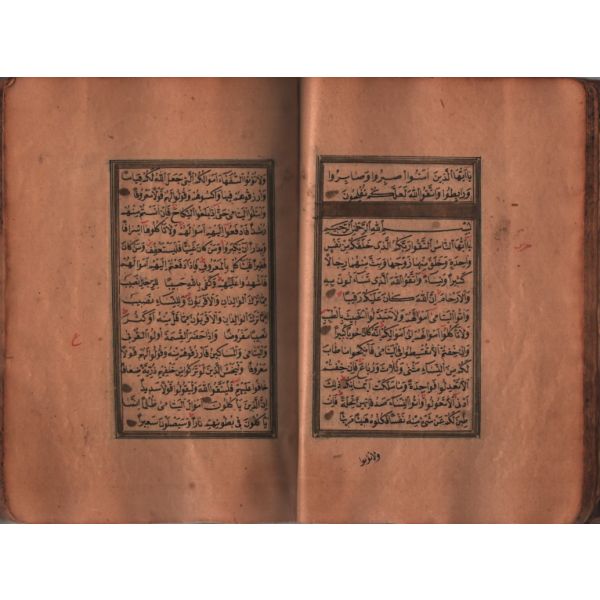 يا ايها الذين امنوا اصبروا وصابروا
ورابطوا واتقوا الله لعلكم تفلحون
بسم الله الرحمن الرحيم
يا ايها الناس اتقوا ربكم الذى خلقكم من نفس
واحدة وخلق منها زوجها وبث منهما رجالا
كثيرا ونساء واتقوا الله الذى تساءلون به
والارحام ان الله كان عليكم رقيبا
واتوا اليتامى اموالهم ولا تتبدلوا الخبيث بالطيب
ولا تاكلوا اموالهم الى اموالكم انه كان حوبا كبيرا
وان خفتم الا تقسطوا فى اليتامى فانكحوا ما طاب
لكم من النساء مثنى وثلاث ورباع فان خفتم
الا تعدلوا فواحدة او ما ملكت ايمانكم ذلك
ادنى الا تعولوا واتوا النساء صدقاتهن نحلة فان
طبن لكم عن شىء منه نفسا فكلوه هنيئا مريئا
ولا تؤتوا
ولا تؤتوا السفهاء اموالكم التى جعل الله لكم قياما
وارزقوهم فيها واكسوهم وقولوا لهم قولا معروفا
وابتلوا اليتامى حتى اذا بلغوا النكاح فان انستم منهم
رشدا فادفعوا اليهم اموالهم ولا تاكلوها اسرافا
وبدارا ان يكبروا ومن كان غنيا فليستعفف ومن كان
فقيرا فلياكل بالمعروف فاذا دفعتم اليهم اموالهم
فاشهدوا عليهم وكفى بالله حسيبا للرجال نصيب
مما ترك الوالدان والاقربون وللنساء نصيب
مما ترك الوالدان والاقربون مما قل منه او كثر
نصيبا مفروضا واذا حضر القسمة اولوا القربى
واليتامى والمساكين فارزقوهم منه وقولوا لهم قولا
معروفا وليخش الذين لو تركوا من خلفهم ذرية ضعافا
خافوا عليهم فليتقوا الله وليقولوا قولا سديدا
ان الذين ياكلون اموال اليتامى ظلما انما
ياكلون فى بطونهم نارا وسيصلون سعيرا